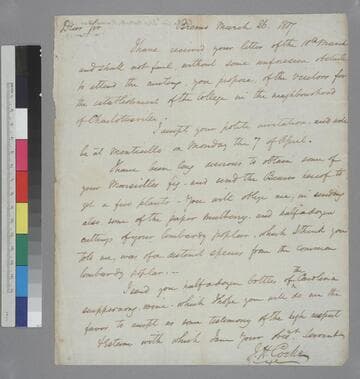 Dear Sir Bremo March 26. 1817
I have received your letter of the 10th March
and shall not fail without some unforeseen obstacle
to attend the meeting you propose, of the visitors for
the establishment of the College in the neighbourhood
of Charlottesville.
I accept your polite invitation and will
be at Monticello on Monday the 7 of April.
I have been long desirous to obtain some of
your Marseilles fig - and send the Bearer hereof to
get a few plants - You will oblige me, in sending
also some of the paper mulberry - and half a dozen
cuttings of your lombardy poplar, which I think you
told me, was of a distinct species from the common
lombardy poplar. -
I send you half a dozen bottles of the Carolina
scuppernong wine - which I hope you will do me the
favor to accept as some testimony of the high respect
& esteem with which I am your Obedt. Servant
J H Cocke